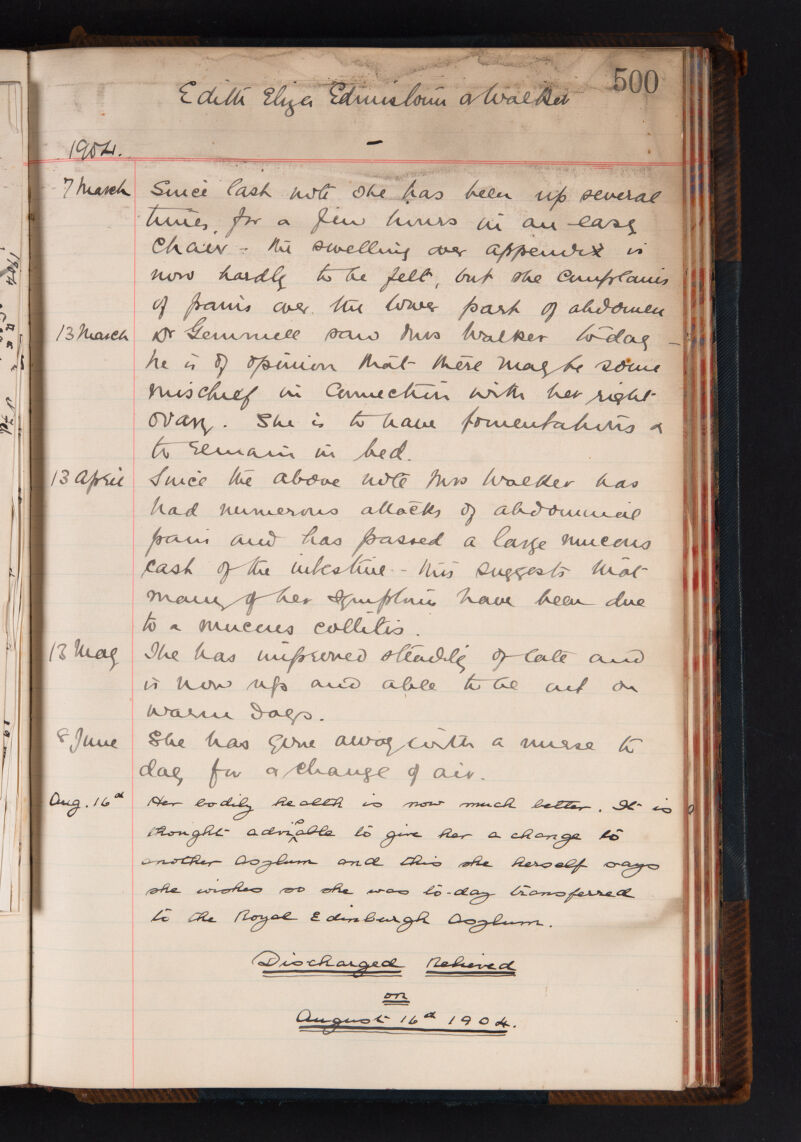 500
Edith Eliza Edmistoun or Walker
1904.
7 March Since last note she has been up several
times, for a few hours in an easy
chair - the swelling over appendix is
now hardly to be felt, but she complains
of pains over the lower part of abdomen
13 March Dr Gemmell saw Mrs Walker to-day -
he is of opinion that there may be some
mischief in connection with her right
ovary. She is to have fomentations &
to remain in bed.
13 April Since the above note Mrs Walker has
had numerous attacks of abdominal
pain and has passed a large mucous
cast of the intestine - this suggests that
many of her symptoms have been due
to a mucous collitis.
13 May She has improved steadily of late and
is now up and able to be out on
warm days.
8 June She has gone away with a nurse to
day for a change of air.
Aug. 16th Her bodily health is now much better. It is
thought advisable to give her a change to
another asylum and this she herself says
she wishes so she was to-day transferred
to the Royal Edinburgh Asylum.
Discharged Relieved
on
August 16th 1904.